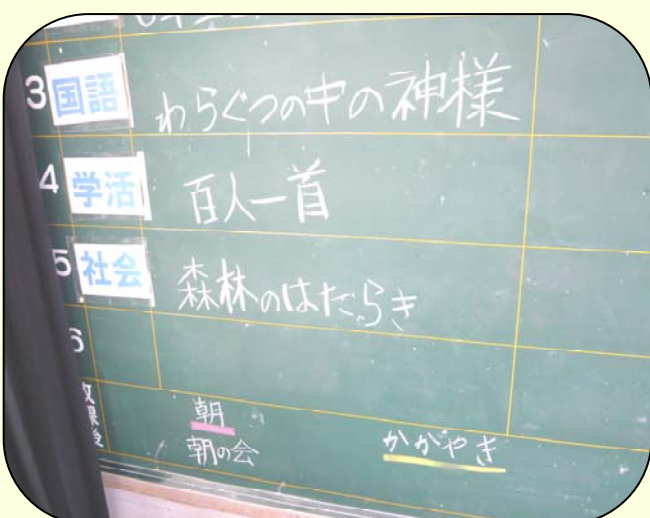 3 国語 わらぐつの中の神様
4 学活 百人一首
5 社会 森林のはたらき
6
放課後 朝
朝の会 かがやき